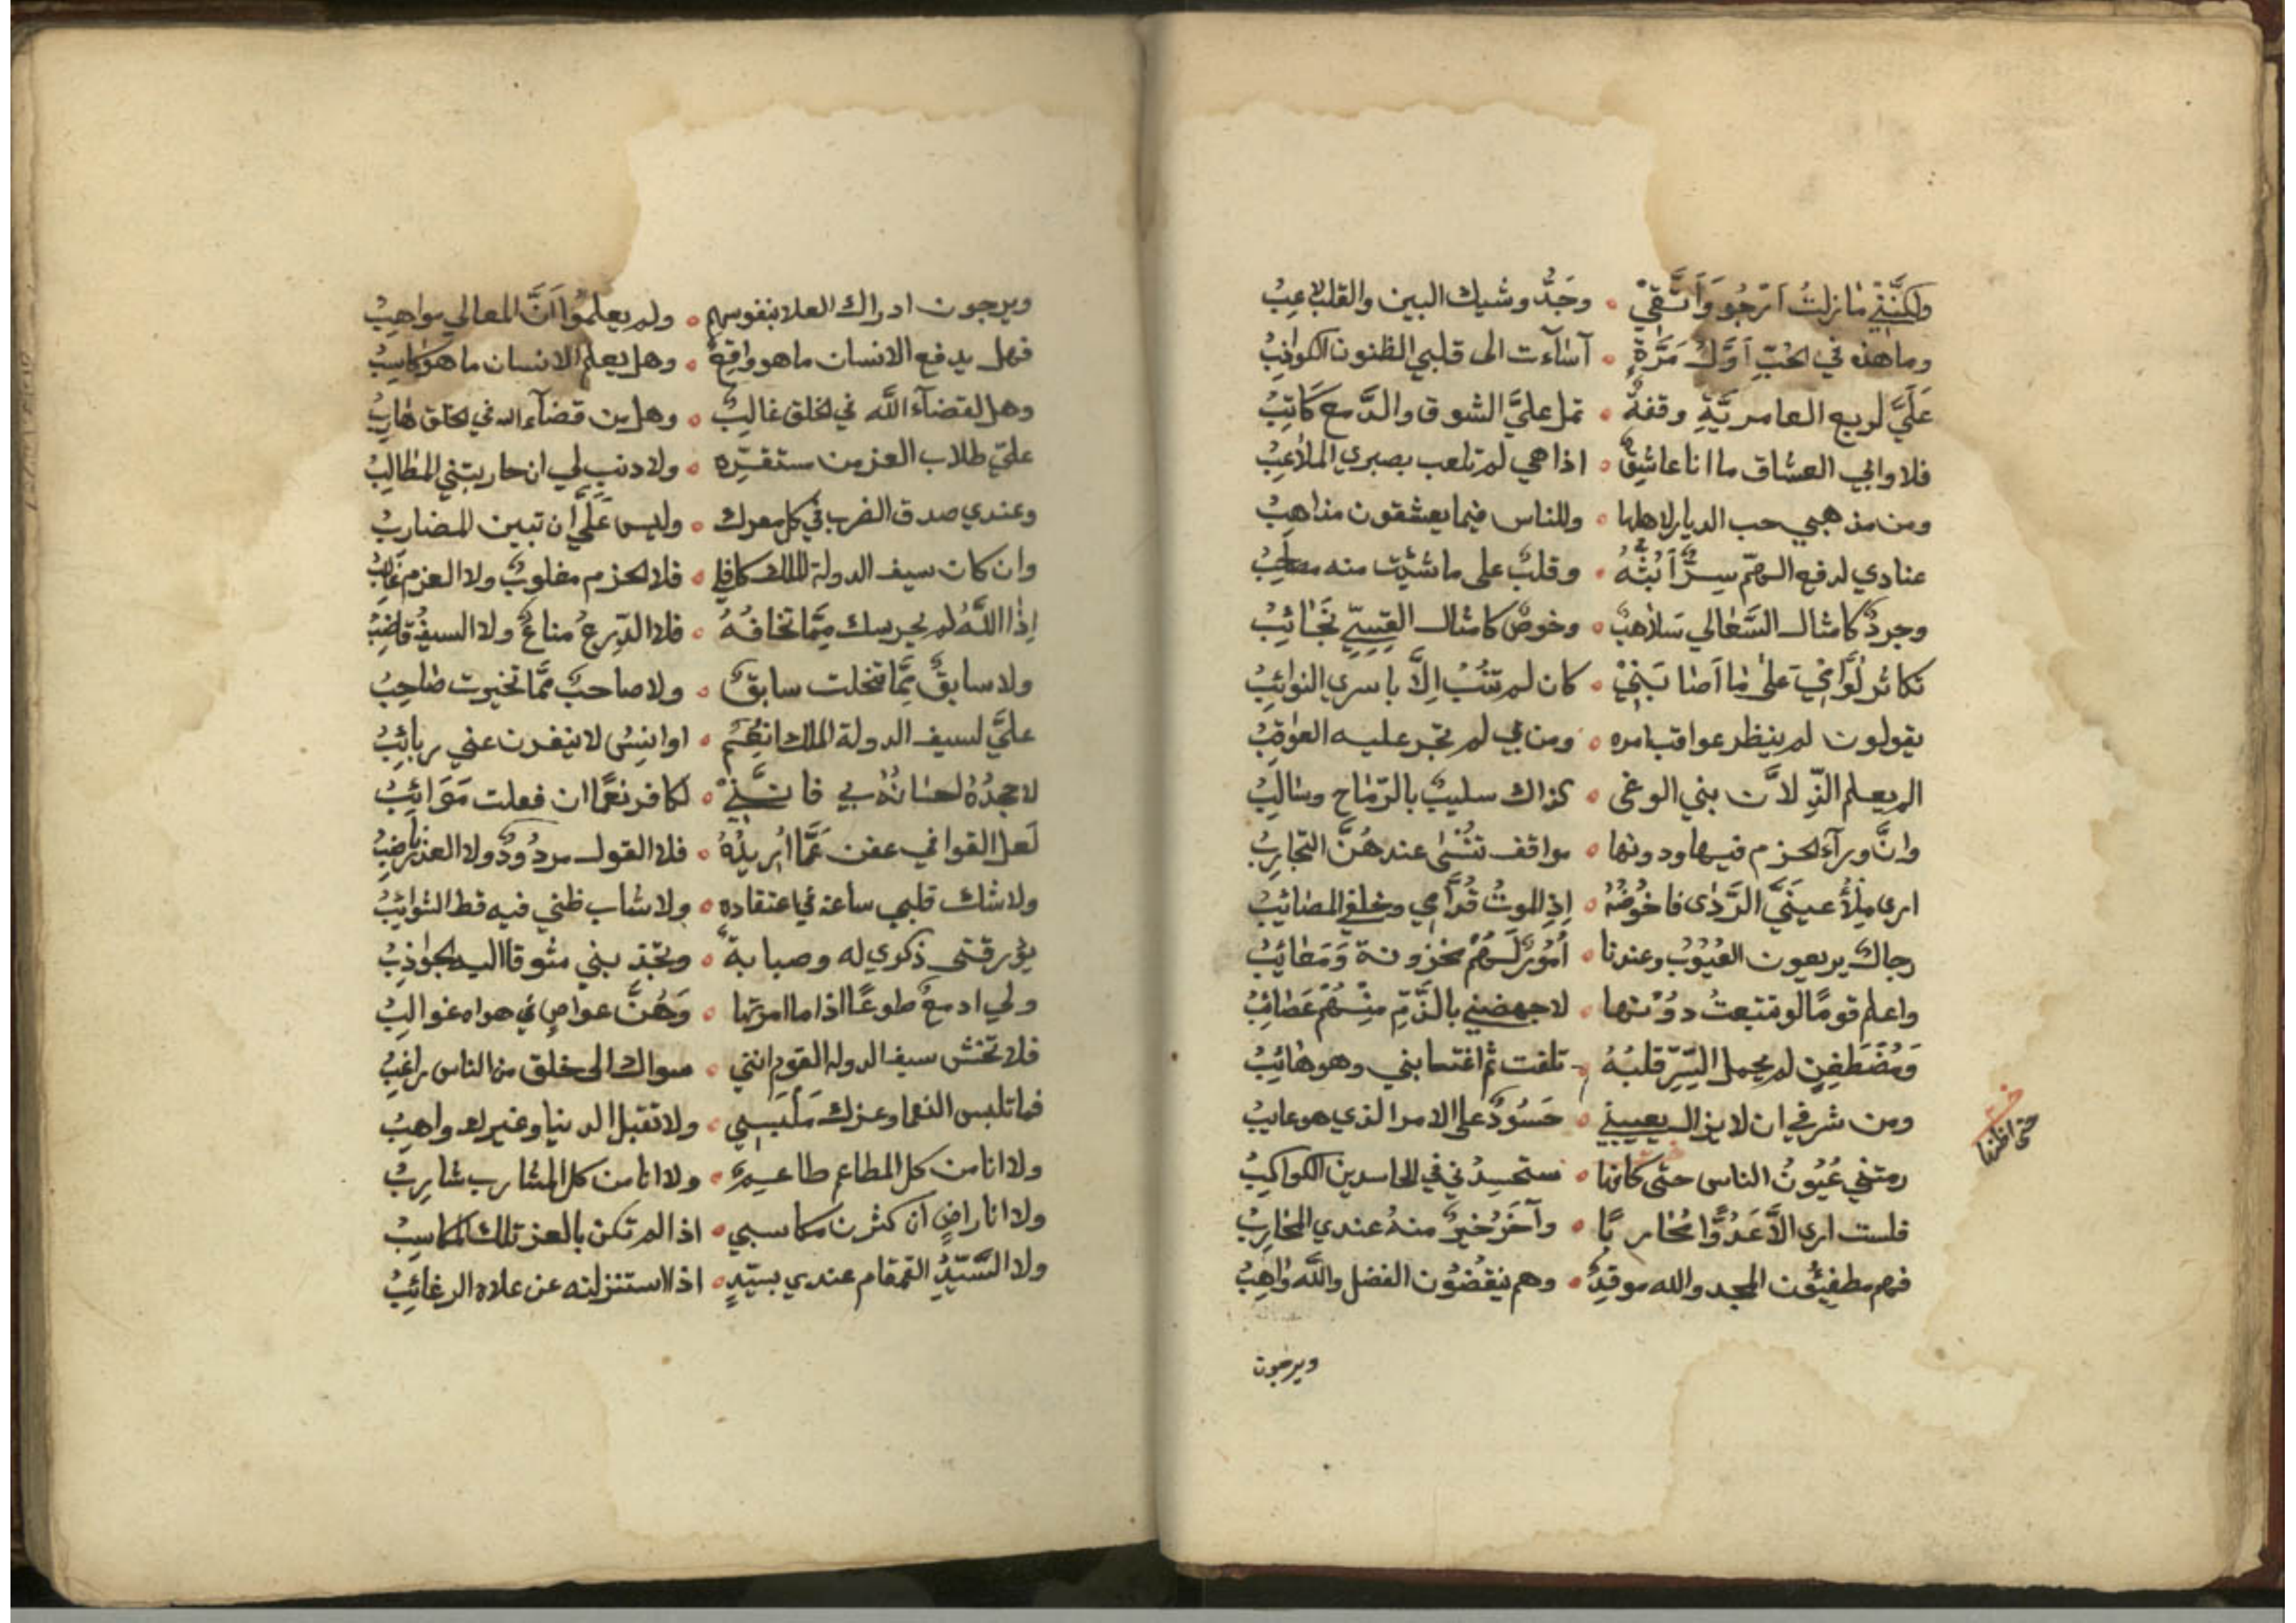 ولكنَّني ما زلتُ اَرْجُو وَاَتَّقي ه وجَدُّ وشيك البين والقلب لاعِبُ
وما هذه في الحُبِّ اَوَّلُ مَرَّةٍ ه اَساَءت الى قلبي الظنون الكواذبُ
عَلَيَّ لربع العامريَّةِ وقفةٌ ه تمل عليَّ الشوق والدَّمع كَاتِبُ
فلا وابي العشاق ما انا عاشِقٌ ه اذا هي لم تلعب بصبري الملاعِبُ
ومن مذهبي حب الديار لاهلها ه وللناس فيما يعشقون مذاهبُ
عتادي لدفع الهمّ سِرٌّ اَبُثُّهُ ه وقلبٌ على ما شئِت منه مصاحِبُ
وجردٌ كامثال السَّعالي سَلاهبٌ ه وخوصٌ كامثال القِسِيِّ نَجَائبُ
تكاثر لُوَّامي على ما اَصابَني ه كان لم تنُبْ اِلاَّ باسري النوائبُ
يقولون لم ينظر عواقب امره ه ومن لم تجر عليه العواقبُ
الم يعلم الذلان بني الوغى ه كذاك سليبٌ بالرّماح وسالبُ
وانَّ ورآء الحزم فيها ودونها ه مواقف تنْسى عندهُنَّ التجاربُ
ارى مِلْأَ عينَيَّ الرَّدى فاخُوضُهُ ه اِذِ الموتُ قُدَّامي وخلفي المصائبُ
رجال يريعون العُيُوبَ وعندنا ه اُمُورٌ لَهُم مخزونة وَمَعائبُ
واعلم قومًا لو تتبعتُ دُونها ه لاجهضني بالذَّمِّ مِنْهُمْ عَصائبُ
وَمُضْطَغِنٍ لم يحمل السِّرّ قلبُهُ تلفت ثم اغتابني وهو هائبُ
ومن شرفي ان لا يزال يعيبني ه حَسُودٌ على الامر الذي هو عايب
رمتني عُيُونُ الناس حتى كانها ه ستحسِدُني في الحاسدين الكواكبُ
حتى اظنها
فلست ارى اِلاَّ عَدُوًّا مُحاربًا ه وآخَرُ خيرٌ منهُ عندي المحاربُ
فهم مطفِئُون المجد والله موقِدٌ ه وهم ينقصُون الفضل والله واهبُ
ويرجون
ويرجون ادراك العلا بنفوسهم ه ولم يعلمُوا اَنَّ المعالي مواهِبُ
فهل يدفع الانسان ما هو واقِعٌ ه وهل يعلم الانسان ما هو كاسِبُ
وهل لقضآء الله في الخلق غالبٌ ه وهل من قضآء الله في الخلق هاربُ
عليّ طلاب العز من مستقرّه ه ولا ذنب لي ان حاربتني المطالِبُ
وعندي صدق الضرب في كل معرك ه وليس عَلَيَّ اَن تبين المضاربُ
وان كان سيف الدولة الملك كافلي ه فلا الحزم مغلوبٌ ولا العزم غالبُ
اِذا اللَّهُ لم يحرسك مِمَّا تخافُهُ ه فلا الدّرعُ مناعٌ ولا السيفُ قاضِبُ
ولا سابقٌ مِمَّا تنحلت سابقٌ ه ولا صاحبٌ ممَّا تخيرت صاحِبُ
عليَّ لسيف الدولة الملك انعُمٌ ه اوانِسُ لا ينفرن عني ربائبُ
لاجحدُهُ احسانُهُ بي فانَّني ه لكافر نعمًا ان فعلت مَوَاربُ
لَعلّ القوافي عفن عَمَّا اُريدُهُ ه فلا القول مردُودٌ ولا العذر ناضبُ
ولا شك قلبي ساعة في اعتقاده ه ولا شاب ظني فيه قط الشوائبُ
يؤرقني ذكري له وصبابةٌ ه وتجذبني شوقا اليه الجواذبُ
ولي ادمعٌ طوعًا اذا ما امرتها ه وَهُنَّ عواصٍ في هواه غوالبُ
فلا تخش سيف الدولة القوم انني ه سواك الى خلق من الناس راغبُ
فما تلبس النعما وعزك مَلْبَسِي ه ولا تقبل الدنيا وغيرك واهبُ
ولا انا من كل المطاعم طاعِمٌ ه ولا انا من كل المشارب شارِبُ
ولا انا راضٍ ان كثرن مكاسبي ه اذا لم تكن بالعز تلك المكاسِبُ
ولا السَّيِّدُ القمقام عندي بسيّدٍ ه اذا استنزلته عن علاه الرغائِبُ